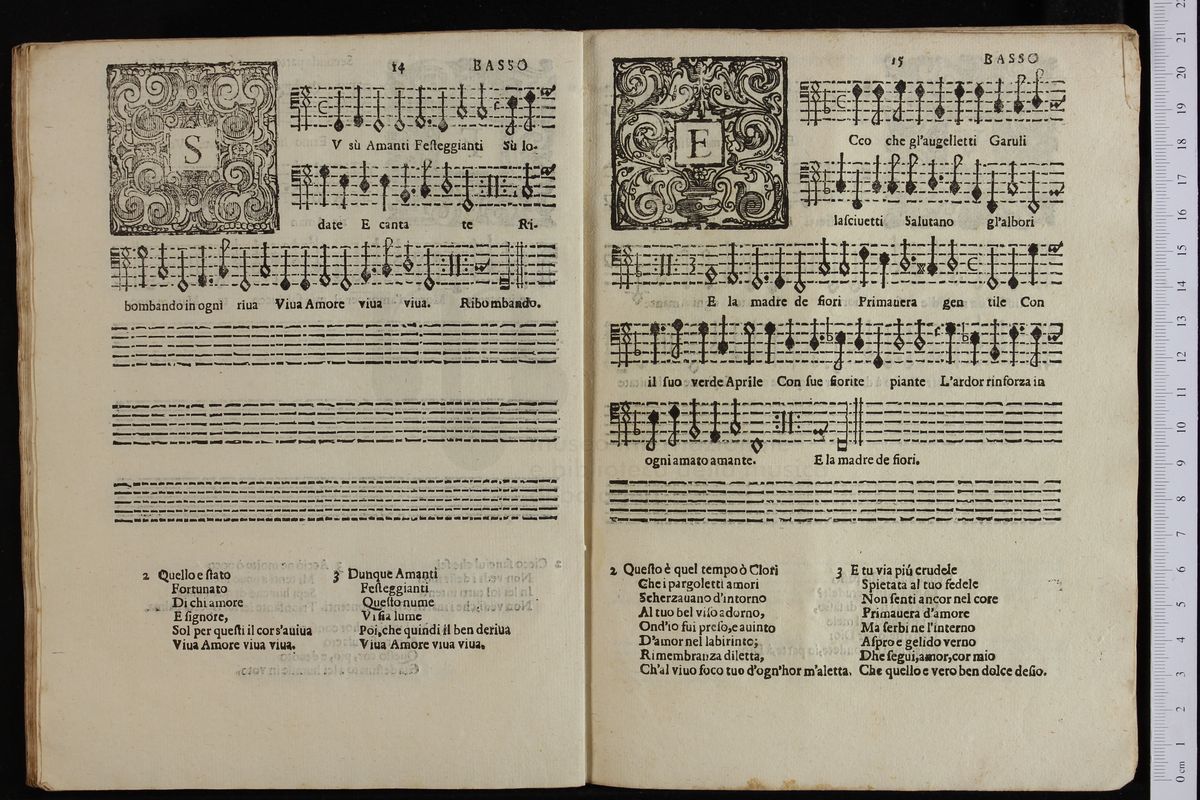 14 BASSO
S
V sù Amanti Feſteggianti Sù lo-
date E canta te Ri-
bombando in ogni riua Viua Amore viua viua. Ribombando.
2 Quello e ſtato
Fortunato
Di chi amore
E ſignore,
Sol per queſti il cor s'auiua
Viua Amore viua viua.
3 Dunque Amanti
Feſteggianti
Queſto nume
Vi ſia lume
Poi, che quindi il ben deriua
Viua Amore viua viua.
15 BASSO
E
Cco che gl'augelletti Garuli
laſciuetti Salutano gl'albori
E la madre de fiori Primauera gen tile Con
il ſuo verde Aprile Con ſue fiorite piante L'ardor rinforza in
ogni amato amante. E la madre de fiori.
2 Queſto è quel tempo ò Clori
Che i pargoletti amori
Scherzauano d'intorno
Al tuo bel viſo adorno,
Ond'io fui preſo, e auinto
D'amor nel labirinto;
Rimembranza diletta,
Ch'al viuo foco tuo d'ogn'hor m'aletta.
3 E tu via più crudele
Spietata al tuo fedele
Non ſenti ancor nel core
Primauera d'amore
Ma ſerbi ne l'interno
Aſpro e gelido verno
Dhe ſegui, amor, cor mio
Che quello e vero ben dolce deſio.
0 cm 1 2 3 4 5 6 7 8 9 10 11 12 13 14 15 16 17 18 19 20 21